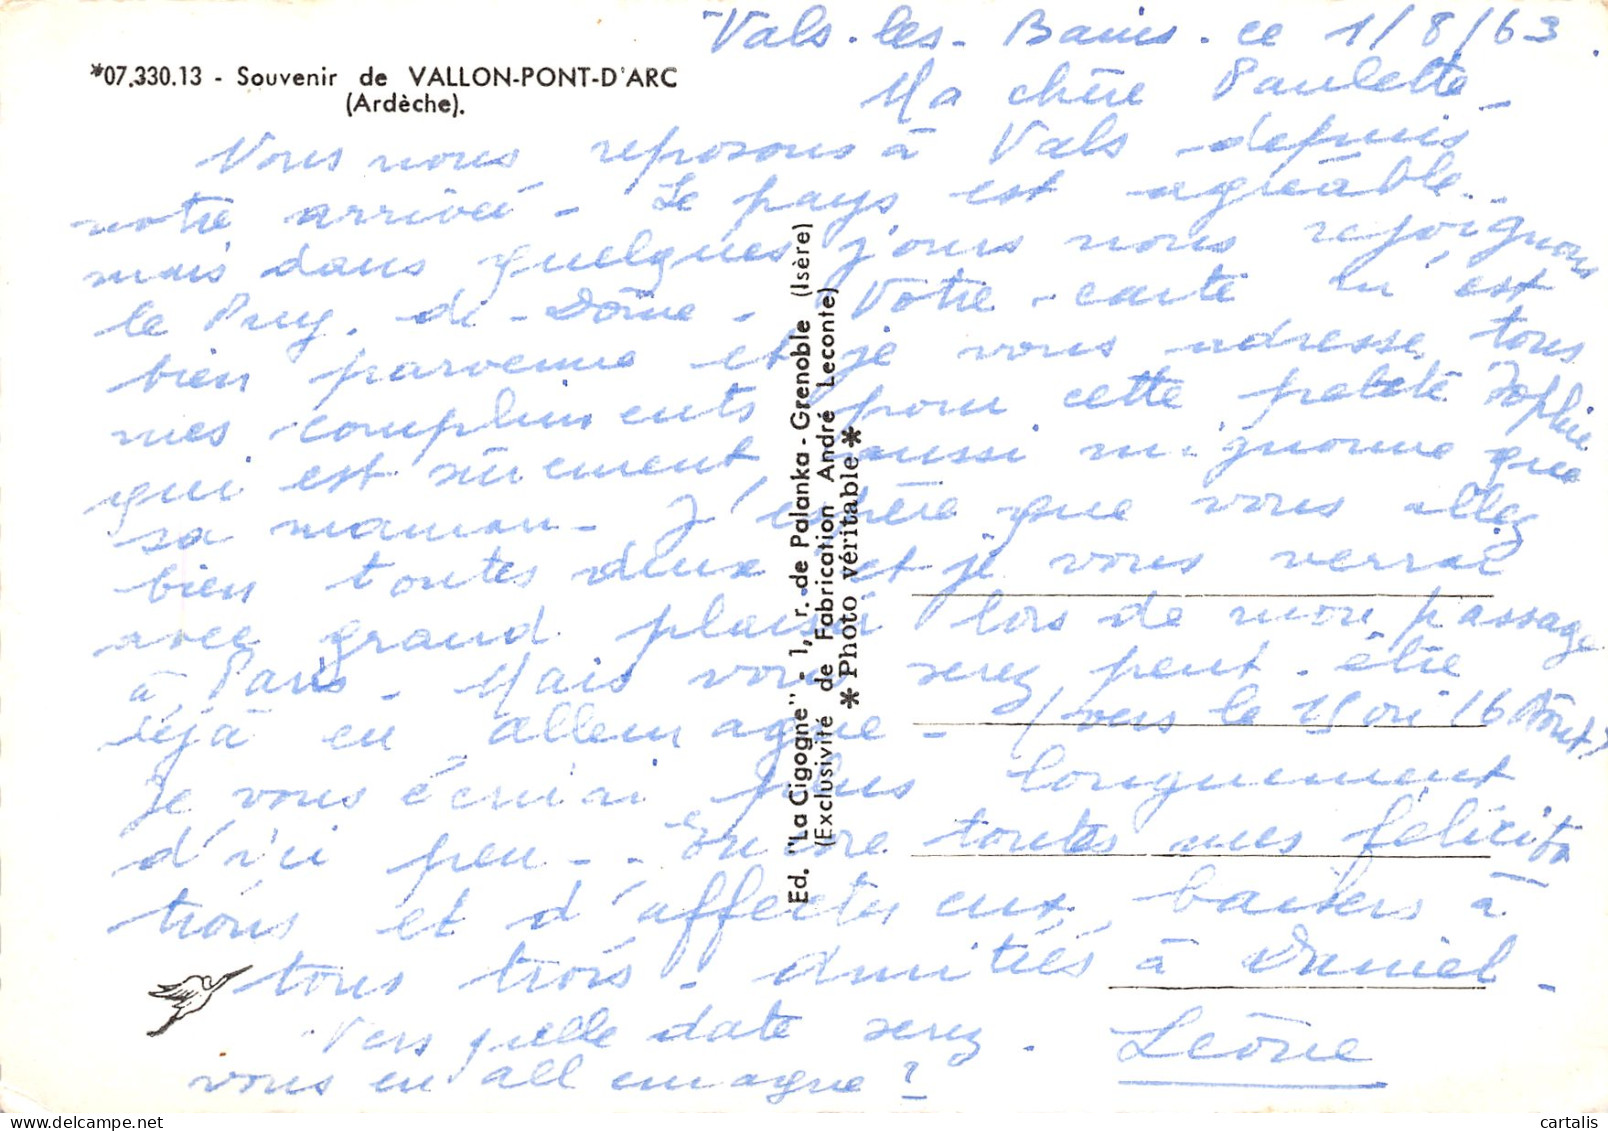 Vals-les-Bains. ce 1/8/63.
*07.330.13 - Souvenir de VALLON-PONT-D'ARC
(Ardèche).
Ma chère Paulette_
Nous nous reposons à Vals depuis
notre arrivée - Le pays est agréable..
mais dans quelques jours nous rejoignons
le Puy-de-Dôme - Votre carte m'est
bien parvenue et je vous adresse tous
mes compliments pour cette petite Sophie
qui est sûrement aussi mignonne que
sa maman - J'espère que vous allez
bien toutes deux et je vous verrai
avec grand plaisir lors de mon passage
à Paris - Mais vous serez peut-être
déjà en allemagne - (vers le 15 ou 16 Août)
Je vous écrirai plus longuement
d'ici peu - - Encore toutes mes félicita
tions et d'affectueux baisers à
tous trois - Amitiés à Daniel -
Vers quelle date serez-
vous en allemagne ?
Léone
Ed. "La Cigogne" - 1, r. de Palanka - Grenoble (Isère)
(Exclusivité de Fabrication André Leconte)
*Photo véritable*
cartalis